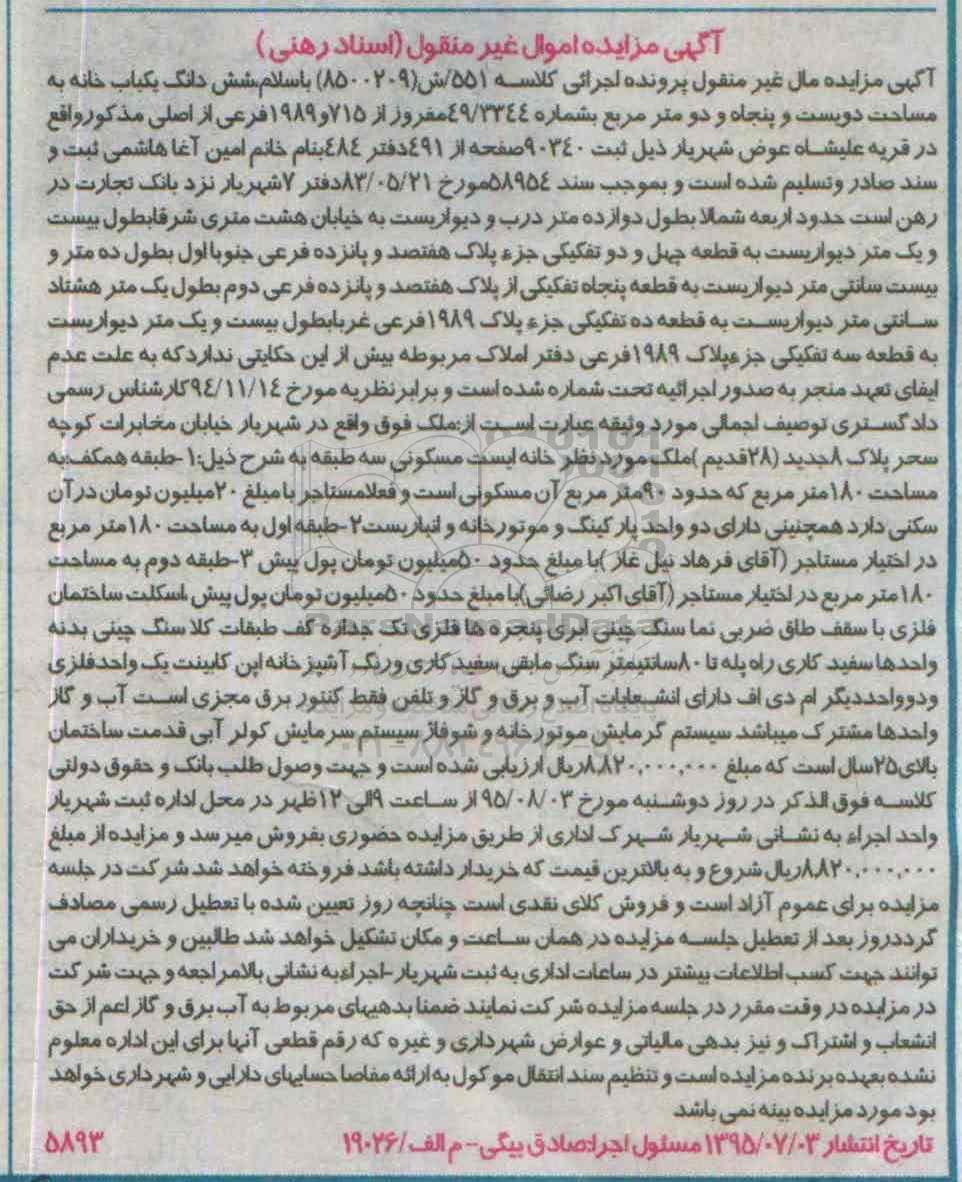 آگهی مزایده اموال غیر منقول (اسناد رهنی)
آگهی مزایده مال غیر منقول پرونده اجرائی کلاسه ۵۵۱/ش(۸۵۰۰۲۰۹) باسلام،شش دانگ یکباب خانه به
مساحت دویست و پنجاه و دو متر مربع بشماره ۴۹/۳۳۴۴مفروز از ۷۱۵و۱۹۸۹فرعی از اصلی مذکورواقع
در قریه علیشاه عوض شهریار ذیل ثبت ۹۰۳۴۰صفحه از ۴۹۱دفتر ۴۸۴بنام خانم امین آغا هاشمی ثبت و
سند صادر وتسلیم شده است و بموجب سند ۵۸۹۵۴مورخ ۸۳/۰۵/۲۱دفتر ۷شهریار نزد بانک تجارت در
رهن است حدود اربعه شمالا بطول دوازده متر درب و دیواریست به خیابان هشت متری شرقابطول بیست
و یک متر دیواریست به قطعه چهل و دو تفکیکی جزء پلاک هفتصد و پانزده فرعی جنوبا اول بطول ده متر و
بیست سانتی متر دیواریست به قطعه پنجاه تفکیکی از پلاک هفتصد و پانزده فرعی دوم بطول یک متر هشتاد
سانتی متر دیواریست به قطعه ده تفکیکی جزء پلاک ۱۹۸۹فرعی غربابطول بیست و یک متر دیواریست
به قطعه سه تفکیکی جزءپلاک ۱۹۸۹فرعی دفتر املاک مربوطه بیش از این حکایتی نداردکه به علت عدم
ایفای تعهد منجر به صدور اجرائیه تحت شماره شده است و برابر نظریه مورخ ۹۴/۱۱/۱۴کارشناس رسمی
دادگستری توصیف اجمالی مورد وثیقه عبارت است از:ملک فوق واقع در شهریار خیابان مخابرات کوچه
سحر پلاک ۸جدید (۲۸قدیم )ملک مورد نظر خانه ایست مسکونی سه طبقه به شرح ذیل:۱-طبقه همکف به
مساحت ۱۸۰متر مربع که حدود ۹۰متر مربع آن مسکونی است و فعلامستاجر با مبلغ ۲۰میلیون تومان در آن
سکنی دارد همچنینی دارای دو واحد پارکینگ و موتورخانه و انباریست۲-طبقه اول به مساحت ۱۸۰متر مربع
در اختیار مستاجر (آقای فرهاد نیل غاز )با مبلغ حدود ۵۰میلیون تومان پول پیش ۳-طبقه دوم به مساحت
۱۸۰متر مربع در اختیار مستاجر (آقای اکبر رضائی)با مبلغ حدود ۵۰میلیون تومان پول پیش ،اسکلت ساختمان
فلزی با سقف طاق ضربی نما سنگ چینی ابری پنجره ها فلزی تک جداره کف طبقات کلا سنگ چینی بدنه
واحدها سفید کاری راه پله تا ۸۰سانتیمتر سنگ مابقی سفید کاری ورنگ آشپزخانه اپن کابینت یک واحدفلزی
ودوواحددیگر ام دی اف دارای انشعابات آب و برق و گاز و تلفن فقط کنتور برق مجزی است آب و گاز
واحدها مشترک میباشد سیستم گرمایش موتورخانه و شوفاژ سیستم سرمایش کولر آبی قدمت ساختمان
بالای۲۵سال است که مبلغ ۸،۸۲۰،۰۰۰،۰۰۰ریال ارزیابی شده است و جهت وصول طلب بانک و حقوق دولتی
کلاسه فوق الذکر در روز دوشنبه مورخ ۹۵/۰۸/۰۳ از ساعت ۹الی ۱۲ظهر در محل اداره ثبت شهریار
واحد اجراء به نشانی شهریار شهرک اداری از طریق مزایده حضوری بفروش میرسد و مزایده از مبلغ
۸،۸۲۰،۰۰۰،۰۰۰ریال شروع و به بالاترین قیمت که خریدار داشته باشد فروخته خواهد شد شرکت در جلسه
مزایده برای عموم آزاد است و فروش کلای نقدی است چنانچه روز تعیین شده با تعطیل رسمی مصادف
گرددروز بعد از تعطیل جلسه مزایده در همان ساعت و مکان تشکیل خواهد شد طالبین و خریداران می
توانند جهت کسب اطلاعات بیشتر در ساعات اداری به ثبت شهریار-اجراءبه نشانی بالامراجعه و جهت شرکت
در مزایده در وقت مقرر در جلسه مزایده شرکت نمایند ضمنا بدهیهای مربوط به آب برق و گاز اعم از حق
انشعاب و اشتراک و نیز بدهی مالیاتی و عوارض شهرداری و غیره که رقم قطعی آنها برای این اداره معلوم
نشده بعهده برنده مزایده است و تنظیم سند انتقال موکول به ارائه مفاصا حسابهای دارایی و شهرداری خواهد
بود مورد مزایده بیمه نمی باشد
تاریخ انتشار ۱۳۹۵/۰۷/۰۳ مسئول اجرا:صادق بیگی- م الف/۱۹۰۲۶
۵۸۹۳
ParsNamadData